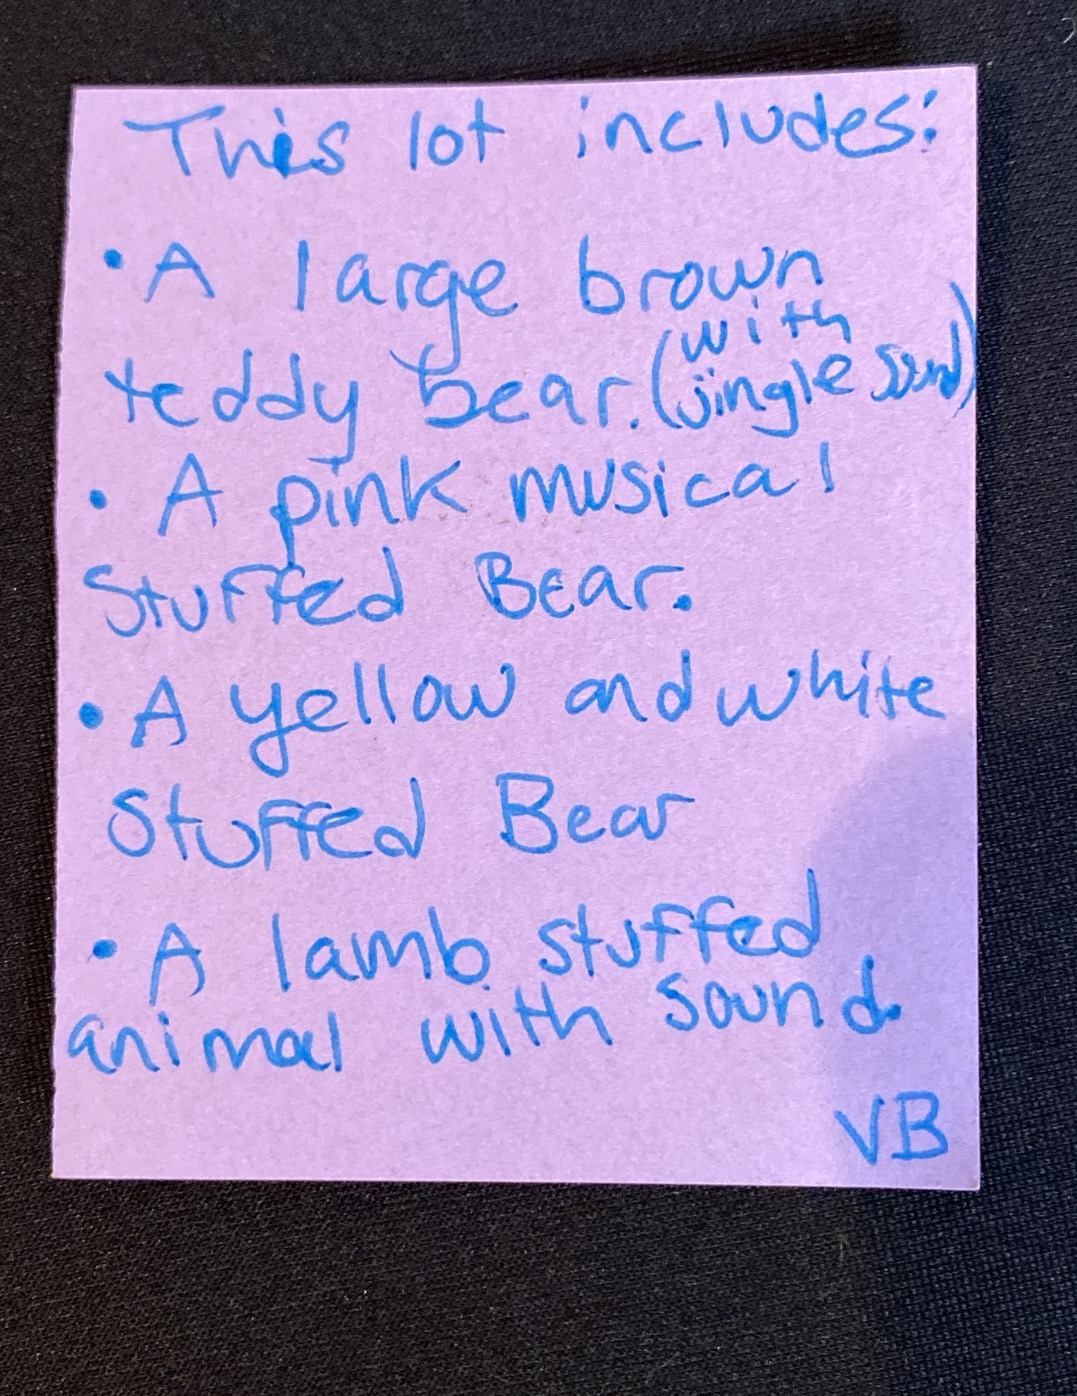 This lot includes:
• A large brown
teddy bear. (with jingle sound)
• A pink musical
Stuffed Bear.
• A yellow and white
Stuffed Bear
• A lamb stuffed
animal with sound.
VB